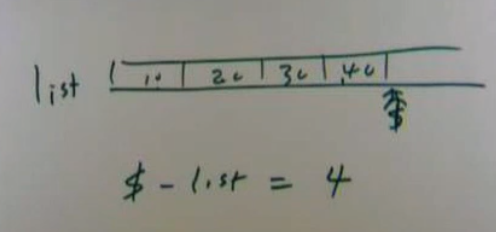 list | 10 | 20 | 30 | 40 |
$
$ - list = 4